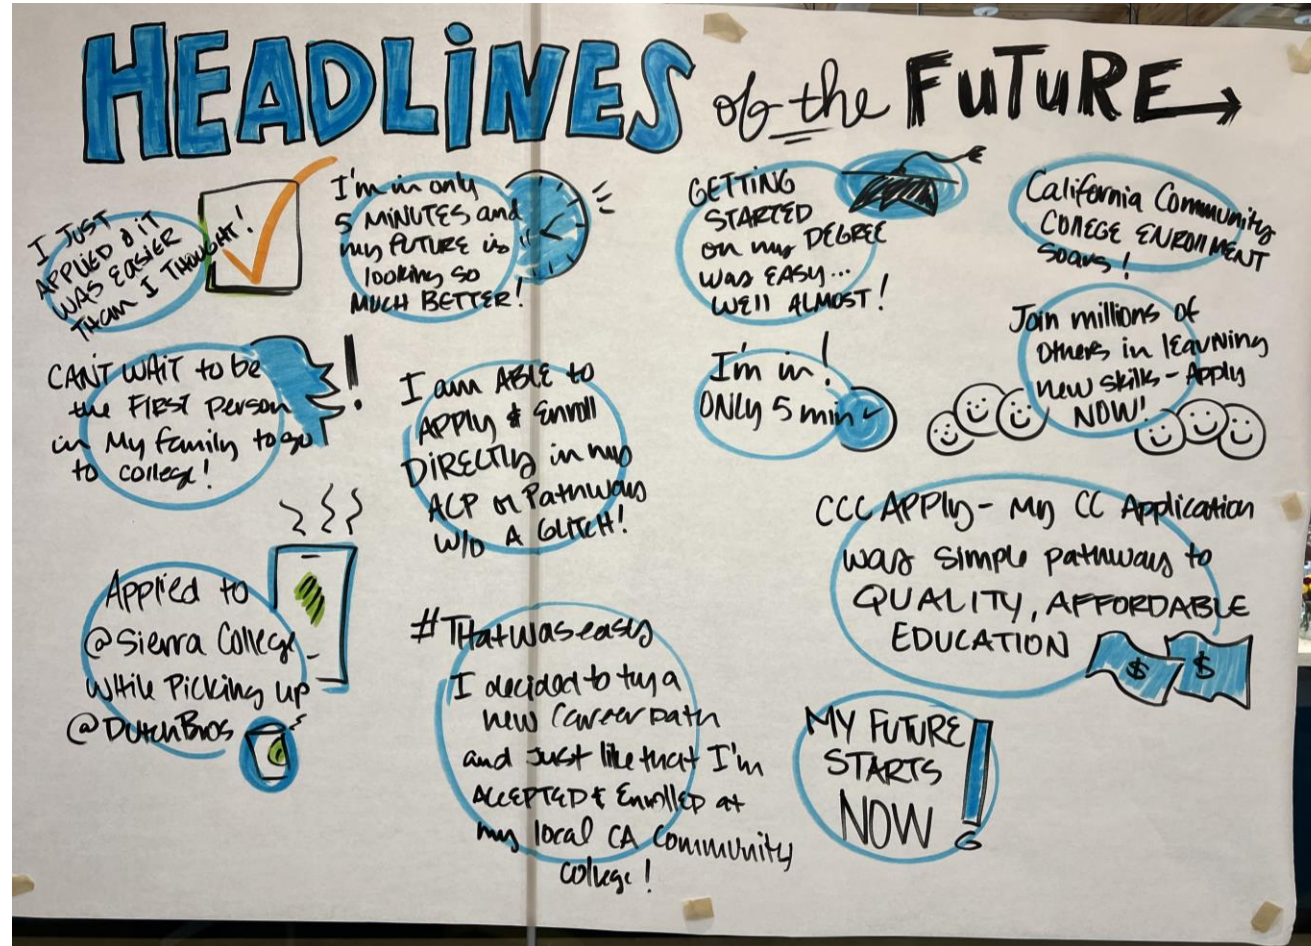 HEADLINES of the FUTURE
I JUST
APPLIED & iT
WAS EASIER
THAN I THOUGHT!
I'm in only
5 MINUTES and
my FUTURE is
looking so
MUCH BETTER!
GETTiNG
STARTED
on my DEGREE
was EASY...
WEll ALMOST!
California Community
COllEGE ENROllMENT
Soars!
CAN'T WAiT to be
the FIRST person
in My family to go
to college!
I am ABLE to
APPLY & Enroll
DiRECTly in my
ACP or Pathway
W/O A GLITCH!
I'm in!
ONLY 5 min
Join millions of
Others in learning
new skills - Apply
NOW!
Applied to
@Sierra College
WHile Picking up
@DutchBros
#THatwaseasy
I decided to try a
new Career path
and Just like that I'm
ACCEPTED & Enrolled at
my local CA Community
college!
CCC APPly - My CC Application
was simple pathway to
QUALITY, AFFORDABLE
EDUCATION
$ $
MY FUTURE
STARTS
NOW!